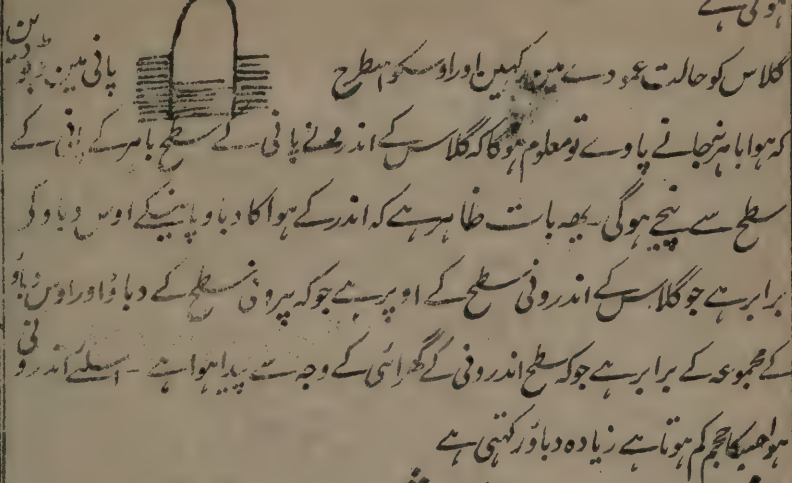 ہوتی ہے
گلاس کو حالت عمودے مین رکہین اور اوسکو اسطرح پانی مین ڈبو دین
کہ ہوا باہر نجانے پاوے تو معلوم ہوگا کہ گلاس کے اندر کے پانی کے سطح باہر کے پانی کے
سطح سے نیچے ہوگی۔ یہہ بات ظاہر ہے کہ اندر کے ہوا کا دباو پانیکے اوس دباو کی
برابر ہے جو گلاس کے اندرونی سطح کے اوپر ہے جو کہ بیرونی سطح کے دباؤ اور اوس دباؤ
کے مجموعہ کے برابر ہے جو کہ سطح اندرونی کے گہرائی کے وجہ سے پیدا ہوا ہے ۔ اسلئے اندرونی
ہوا جسکا حجم کم ہوتا ہے زیادہ دباؤ رکہتی ہے